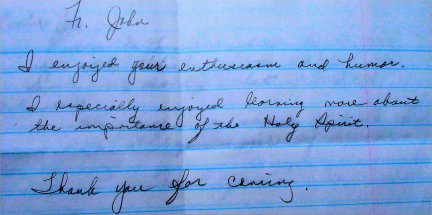 Fr. John
I enjoyed your enthusiasm and humor.
I especially enjoyed learning more about
the importance of the Holy Spirit.
Thank you for coming.